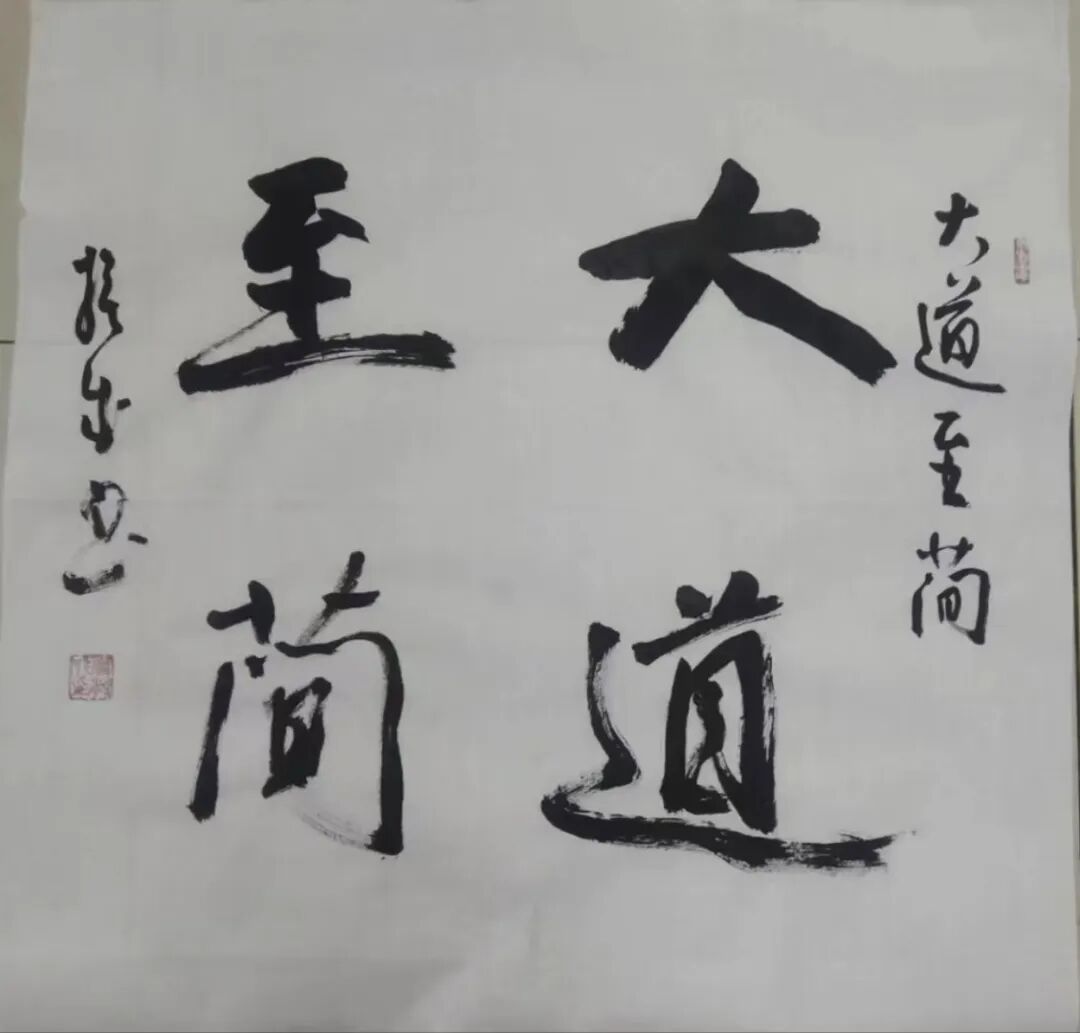 大道至简
大道
至简
书